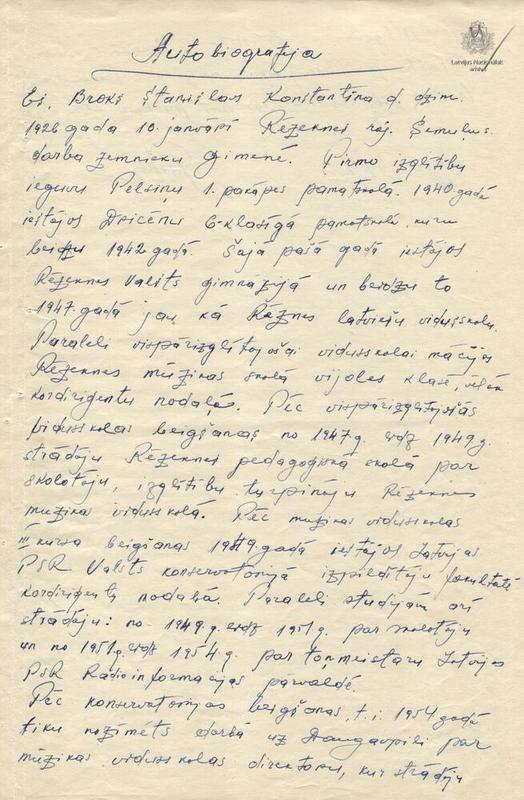 Latvijas Nacionālais
arhīvs
Autobiografija
Es, Broks Staņislavs Konstantīna d. dzim.
1926 gada 10. janvārī Rēzeknes raj.
darba zemnieku ģimenē. Pirmo izglītību
ieguvu Pelsiņu 1. pakāpes pamatskolā. 1940 gadā
iestājos Dricēnu 6-klasīgā pamatskolā kuru
beidzu 1942 gadā. Šajā pašā gadā iestājos
Rēzeknes Valsts ģimnāzijā un beidzu to
1947. gadā jau kā Rēznes latviešu vidusskolu.
Paraleli vispārizglītojošai vidusskolai mācījos
Rēzeknes mūzikas skolā vijoles klasē, vēlāk
kordiriģentu nodaļā. Pēc vispārizglītojošās
vidusskolas beigšanas no 1947 g. līdz 1949 g.
strādāju Rēzeknes pedagoģiskā skolā par
skolotāju, izglītību turpināju Rēzeknes
mūzikas vidusskolā. Pēc mūzikas vidusskolas
III kursa beigšanas 1949 gadā iestājos Latvijas
PSR Valsts konservatorijā izpildītāju fakultātē
kordiriģentu nodaļā. Paraleli studijām arī
strādāju: no 1949. g. līdz 1951 g. par skolotāju
un no 1951 g. līdz 1954 g. par tonmeistaru Latvijas
PSR Radioinformacijas pārvaldē.
Pēc konservatorijas beigšanas, t. i. 1954 gadā
tiku nozīmēts darbā uz Daugavpili par
mūzikas vidusskolas direktoru, kur strādāju